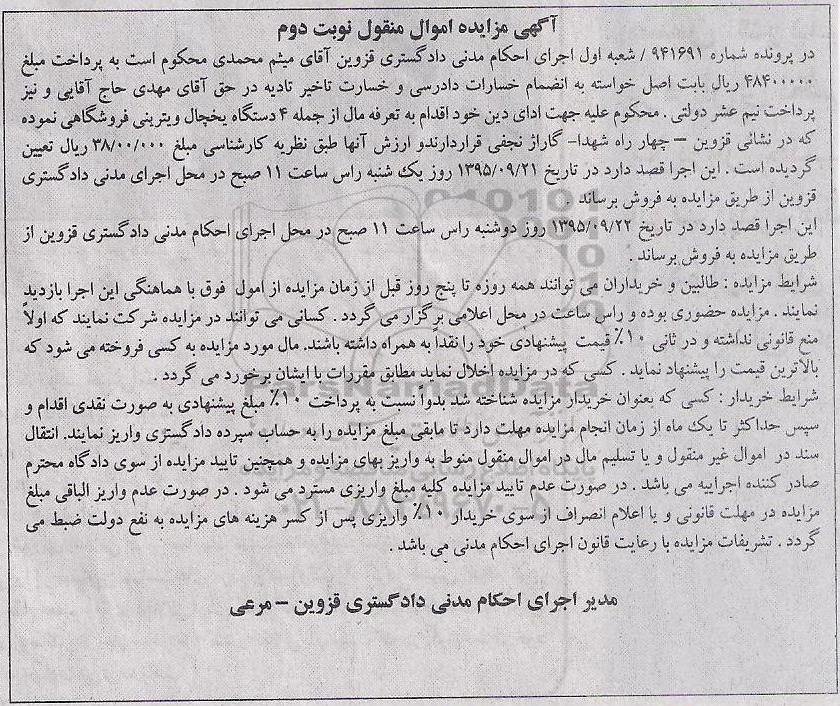 آگهی مزایده اموال منقول نوبت دوم
در پرونده شماره ۹۴۱۶۹۱ / شعبه اول اجرای احکام مدنی دادگستری قزوین آقای میثم محمدی محکوم است به پرداخت مبلغ
۴۸۴۰۰۰۰۰ ریال بابت اصل خواسته به انضمام خسارات دادرسی و خسارت تاخیر تادیه در حق آقای مهدی حاج آقایی و نیز
پرداخت نیم عشر دولتی . محکوم علیه جهت ادای دین خود اقدام به تعرفه مال از جمله ۴ دستگاه یخچال ویترینی فروشگاهی نموده
که در نشانی قزوین – چهار راه شهدا- گاراژ نجفی قراردارندو ارزش آنها طبق نظریه کارشناسی مبلغ ۳۸/۰۰/۰۰۰ ریال تعیین
گردیده است . این اجرا قصد دارد در تاریخ ۱۳۹۵/۰۹/۲۱ روز یک شنبه راس ساعت ۱۱ صبح در محل اجرای مدنی دادگستری
قزوین از طریق مزایده به فروش برساند .
این اجرا قصد دارد در تاریخ ۱۳۹۵/۰۹/۲۲ روز دوشنبه راس ساعت ۱۱ صبح در محل اجرای احکام مدنی دادگستری قزوین از
طریق مزایده به فروش برساند .
شرایط مزایده : طالبین و خریداران می توانند همه روزه تا پنج روز قبل از زمان مزایده از امول فوق با هماهنگی این اجرا بازدید
نمایند . مزایده حضوری بوده و راس ساعت در محل اعلامی برگزار می گردد . کسانی می توانند در مزایده شرکت نمایند که اولاً
منع قانونی نداشته و در ثانی ۱۰٪ قیمت پیشنهادی خود را نقداً به همراه داشته باشند. مال مورد مزایده به کسی فروخته می شود که
بالاترین قیمت را پیشنهاد نماید . کسی که در مزایده اخلال نماید مطابق مقررات با ایشان برخورد می گردد .
شرایط خریدار : کسی که بعنوان خریدار مزایده شناخته شد بدواً نسبت به پرداخت ۱۰٪ مبلغ پیشنهادی به صورت نقدی اقدام و
سپس حداکثر تا یک ماه از زمان انجام مزایده مهلت دارد تا مابقی مبلغ مزایده را به حساب سپرده دادگستری واریز نمایند. انتقال
سند در اموال غیر منقول و یا تسلیم مال در اموال منقول منوط به واریز بهای مزایده و همچنین تایید مزایده از سوی دادگاه محترم
صادر کننده اجراییه می باشد . در صورت عدم تایید مزایده کلیه مبلغ واریزی مسترد می شود . در صورت عدم واریز الباقی مبلغ
مزایده در مهلت قانونی و یا اعلام انصراف از سوی خریدار ۱۰٪ واریزی پس از کسر هزینه های مزایده به نفع دولت ضبط می
گردد . تشریفات مزایده با رعایت قانون اجرای احکام مدنی می باشد .
مدیر اجرای احکام مدنی دادگستری قزوین – مرعی
ParsNamadData